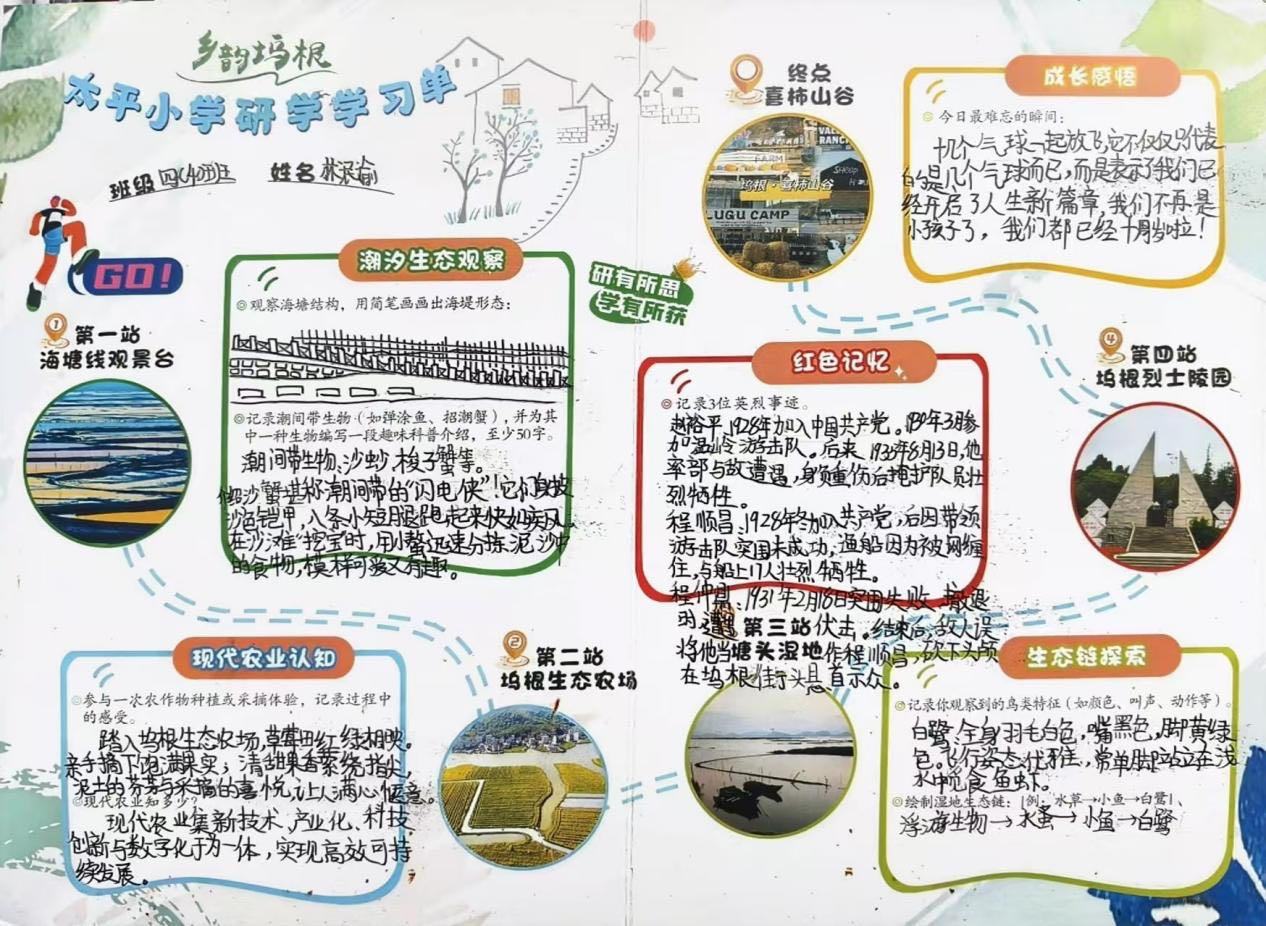 乡韵坞根
太平小学研学学习单
班级 四(4)班
姓名 林
GO!
① 第一站
海塘线观景台
潮汐生态观察
观察海塘结构，用简笔画画出海堤形态：
记录潮间带生物（如弹涂鱼、招潮蟹），并为其
中一种生物编写一段趣味科普介绍，至少50字。
潮间带生物、沙蚬、梭子蟹等。
沙蟹堪称潮间带的“闪电侠”！它们身披
沙色铠甲，八条小短腿跑起来快如疾风。
在沙滩挖宝时，用小螯迅速分拣泥沙中
的食物，模样可爱又有趣。
研有所思
学有所获
② 第二站
坞根生态农场
现代农业认知
参与一次农作物种植或采摘体验，记录过程中
的感受。
踏入坞根生态农场，草莓田红绿相映。
亲手摘下饱满果实，清甜果香萦绕指尖，
泥土的芬芳与采摘的喜悦，让人满心惬意。
现代农业知多少？
现代农业集新技术、产业化、科技
创新与数字化于一体，实现高效可持
续发展。
第三站
塘头湿地
生态链探索
记录你观察到的鸟类特征（如颜色、叫声、动作等）。
白鹭：全身羽毛白色，嘴黑色，脚黄绿
色，飞行姿态优雅，常单脚站立在浅
水中吃食鱼虾。
绘制湿地生态链：[例：水草→小鱼→白鹭]、
浮游生物→水蚤→小鱼→白鹭
④ 第四站
坞根烈士陵园
红色记忆
记录3位英烈事迹。
赵裕平，1928年加入中国共产党。1930年3月参
加温岭游击队。后来，1930年8月13日，他
率部与敌遭遇，身负重伤后掩护队员壮
烈牺牲。
程顺昌：1928年冬加入共产党，后因带领
游击队突围未成功，渔船因为被网缠
住，与船上17人壮烈牺牲。
程仲昌：1931年2月18日突围失败，撤退
时遭伏击。结束后，敌人误
将他当作程顺昌，砍下头颅
在坞根街头悬首示众。
终点
喜柿山谷
FARM
VALLEY
RANCH
SHOP
坞根·喜柿山谷
LUGU CAMP
成长感悟
今日最难忘的瞬间：
十几个气球一起放飞，它不仅仅只代表
的是几个气球而已，而是表示了我们已
经开启了人生新篇章，我们不再是
小孩子了，我们都已经十周岁啦！